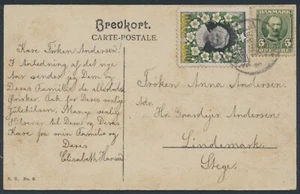 Brevkort.
CARTE-POSTALE.
Kære Frøken Andersen!
I Anledning af det nye
Aar sender jeg Dem og
Deres Familie de allerbedste
Ønsker. Tak for Deres venlig
Julehilsen. Mange venlig
Hilsener til Dem og Deres
fra min Familie og
Deres
Elisabeth Hansen
5 5
Frøken Anna Andersen.
Adr. Hr. Andersen
Lindemark
Stege.